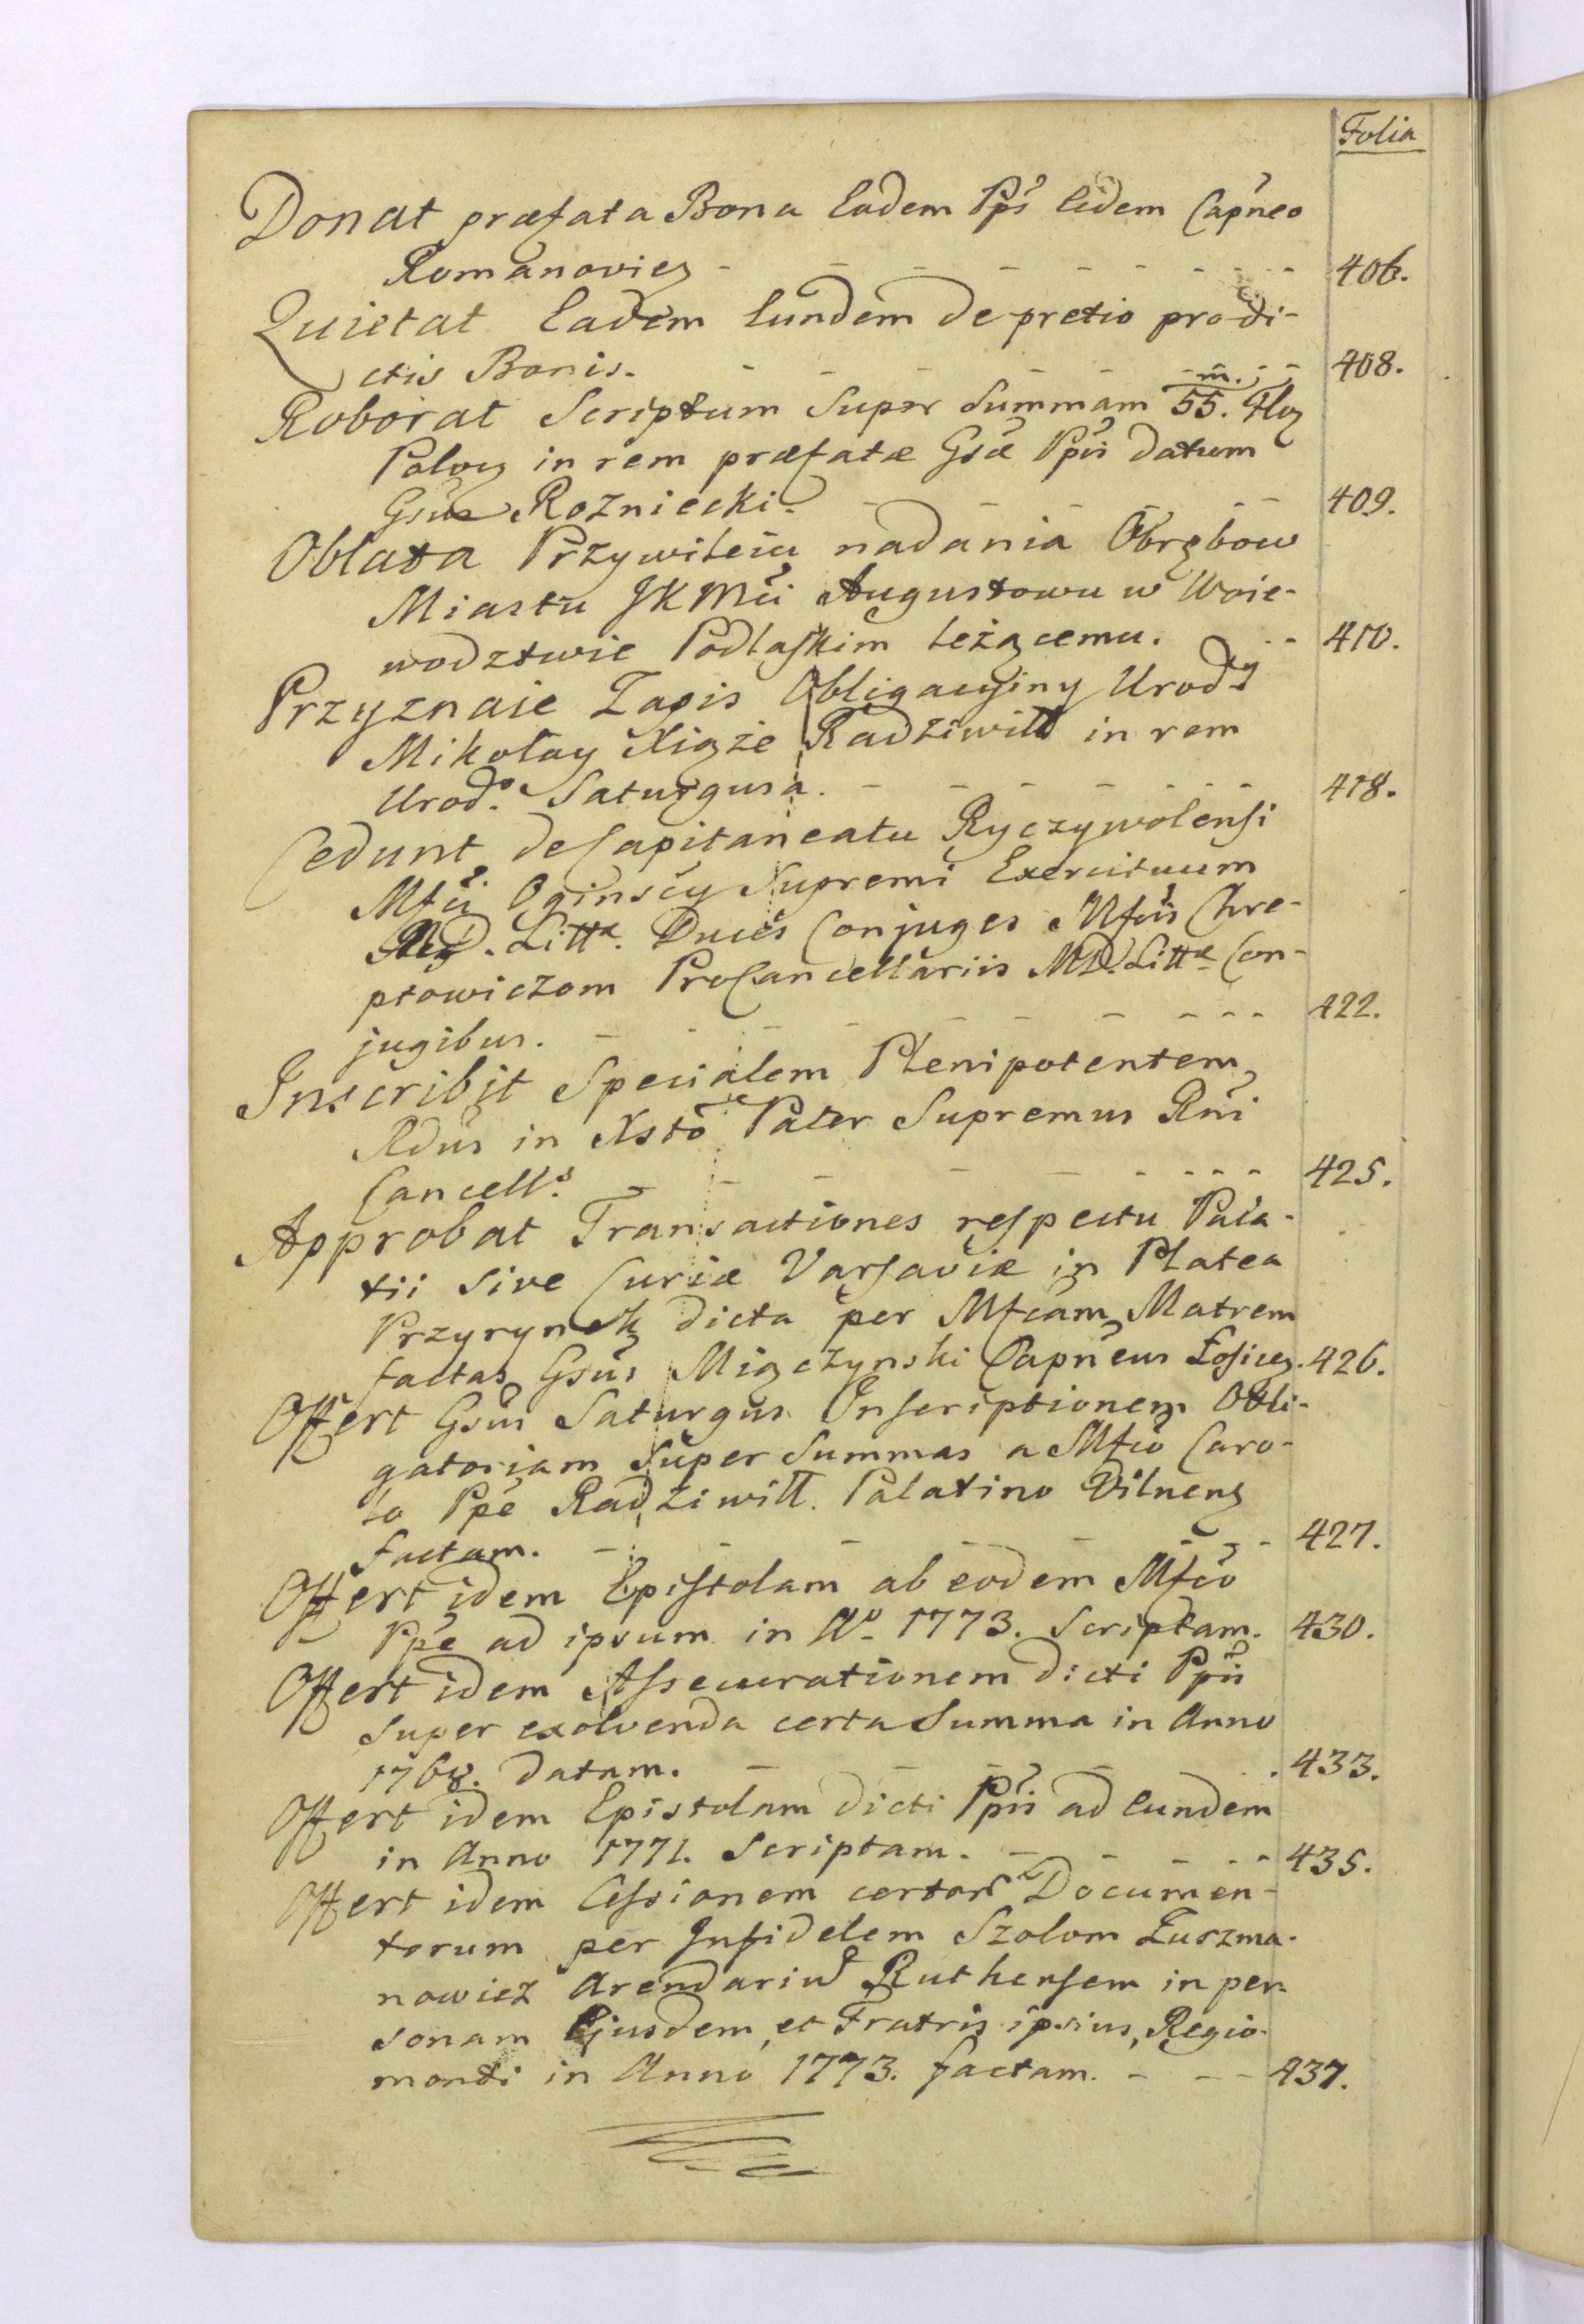 Folia
Donat præfata Bona Eadem Pps Eidem Capneo
Romanovicz - - - - - - - - - 406.
Quietat Eadem Eundem de pretio prodi-
ctis Bonis. - - - - - - - 408.
Roborat Scriptum Super Summam 55.m Flor
Polon in rem præfatæ Gsæ Ppis datum
Gsus Rozniecki. - - - - - 409.
Oblata Przywileiu nadania Obrębow
Miastu JKMci Augustowu w Woie-
wodztwie Podlaskim leżącemu. - - 410.
Przyznaie Zapis Obligacyiny Urod.
Mikołay Xiąże Radziwiłł in rem
Urodo. Saturgusa. - - - - - - - 418.
Cedunt de Capitaneatu Ryczywolensi
Mfci Oginscy Supremi Exercituum
M.D. Littæ. Duces Conjuges Mfcis Chre-
ptowiczom ProCancellariis MD. Littæ Con-
jugibus. - - - - - - - - - 422.
Inscribit Specialem Plenipotentem
Rdus in Xsto Pater Supremus Rni
Cancells. - - - - - - - - 425.
Approbat Transactiones respectu Pala-
tii sive Curiæ Varsaviæ in Platea
Przyrynek dicta per Mfcam Matrem
factas Gsus Miączynski Capneus Łosicen. 426.
Offert Gsus Saturgus Inscriptionem Obli-
gatoriam Super Summas a Mfco Caro-
lo Ppe Radziwiłł Palatino Vilnens
factam. - - - - - - - 427.
Offert idem Epistolam ab eodem Mfco
Ppe ad ipsum in Ao. 1773. Scriptam. 430.
Offert idem Assecurationem dicti Ppis
Super exolvenda certa Summa in Anno
1768. datam. - - - - . 433.
Offert idem Epistolam dicti Ppis ad Eundem
in Anno 1771. Scriptam. - - - - - 435.
Offert idem Cessionem certor Documen-
torum per Infidelem Szolom Łuszma-
nowicz Arendarium Ruthensem in per-
sonam Ejusdem, et Fratris ipsius, Regio-
monti in Anno 1773. factam. - - - 437.